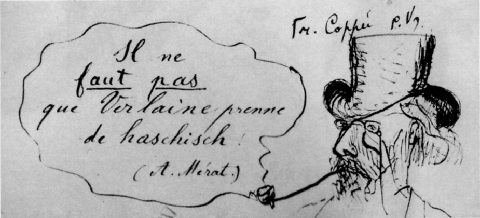 Fr. Coppée P. V.
Il ne
faut pas
que Verlaine prenne
de haschisch !
(A. Mérat.)